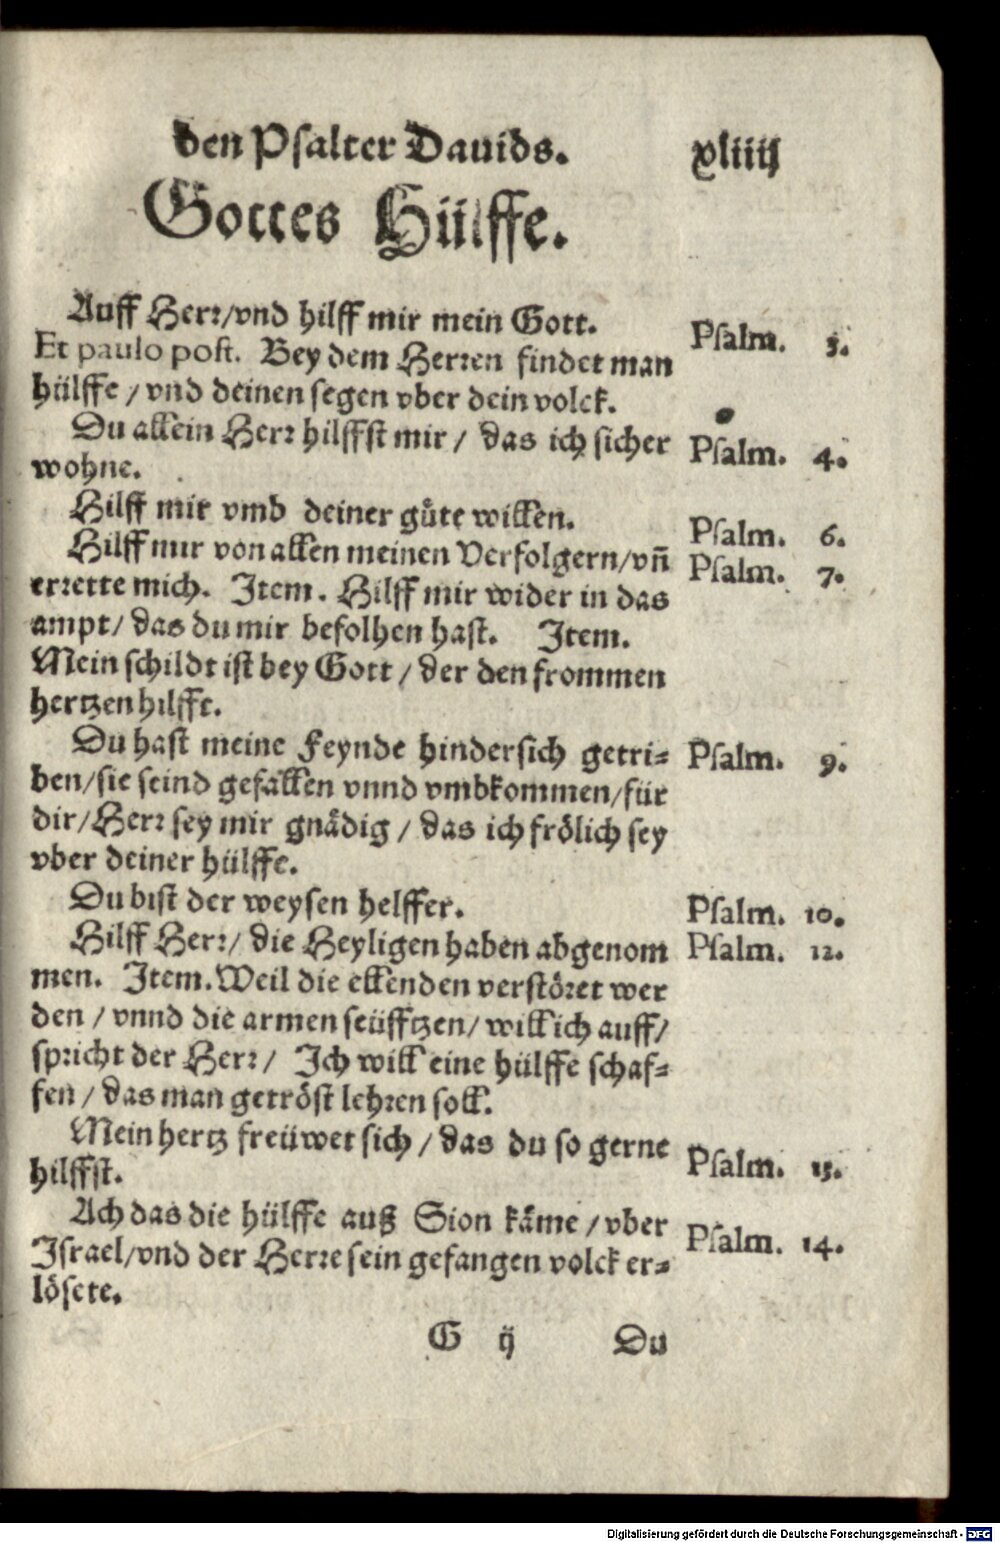 den Psalter Dauids. xliiij
Gottes Hülffe.
Auff Herr/vnd hilff mir mein Gott.
Psalm. 3.
Et paulo post. Bey dem Herren findet man
hülffe / vnd deinen segen vber dein volck.
Du allein Herr hilffst mir / das ich sicher
Psalm. 4.
wohne.
Hilff mir vmb deiner güte willen.
Psalm. 6.
Hilff mir von allen meinen Verfolgern/vñ
Psalm. 7.
errette mich. Item. Hilff mir wider in das
ampt/ das du mir befolhen hast. Item.
Mein schildt ist bey Gott / der den frommen
hertzen hilfft.
Du hast meine Feynde hindersich getri-
Psalm. 9.
ben/sie seind gefallen vnnd vmbkommen/für
dir/Herr sey mir gnädig / das ich frölich sey
vber deiner hülffe.
Du bist der weysen helffer.
Psalm. 10.
Hilff Herr/ die Heyligen haben abgenom
Psalm. 12.
men. Item. Weil die ellenden verstöret wer
den / vnnd die armen seüfftzen/ will ich auff/
spricht der Herr / Ich will eine hülffe schaf-
fen / das man getröst lehren soll.
Mein hertz freüwet sich / das du so gerne
Psalm. 13.
hilffst.
Ach das die hülffe auß Sion käme / vber
Psalm. 14.
Israel/vnd der Herre sein gefangen volck er-
lösete.
G ij Du
Digitalisierung gefördert durch die Deutsche Forschungsgemeinschaft - DFG